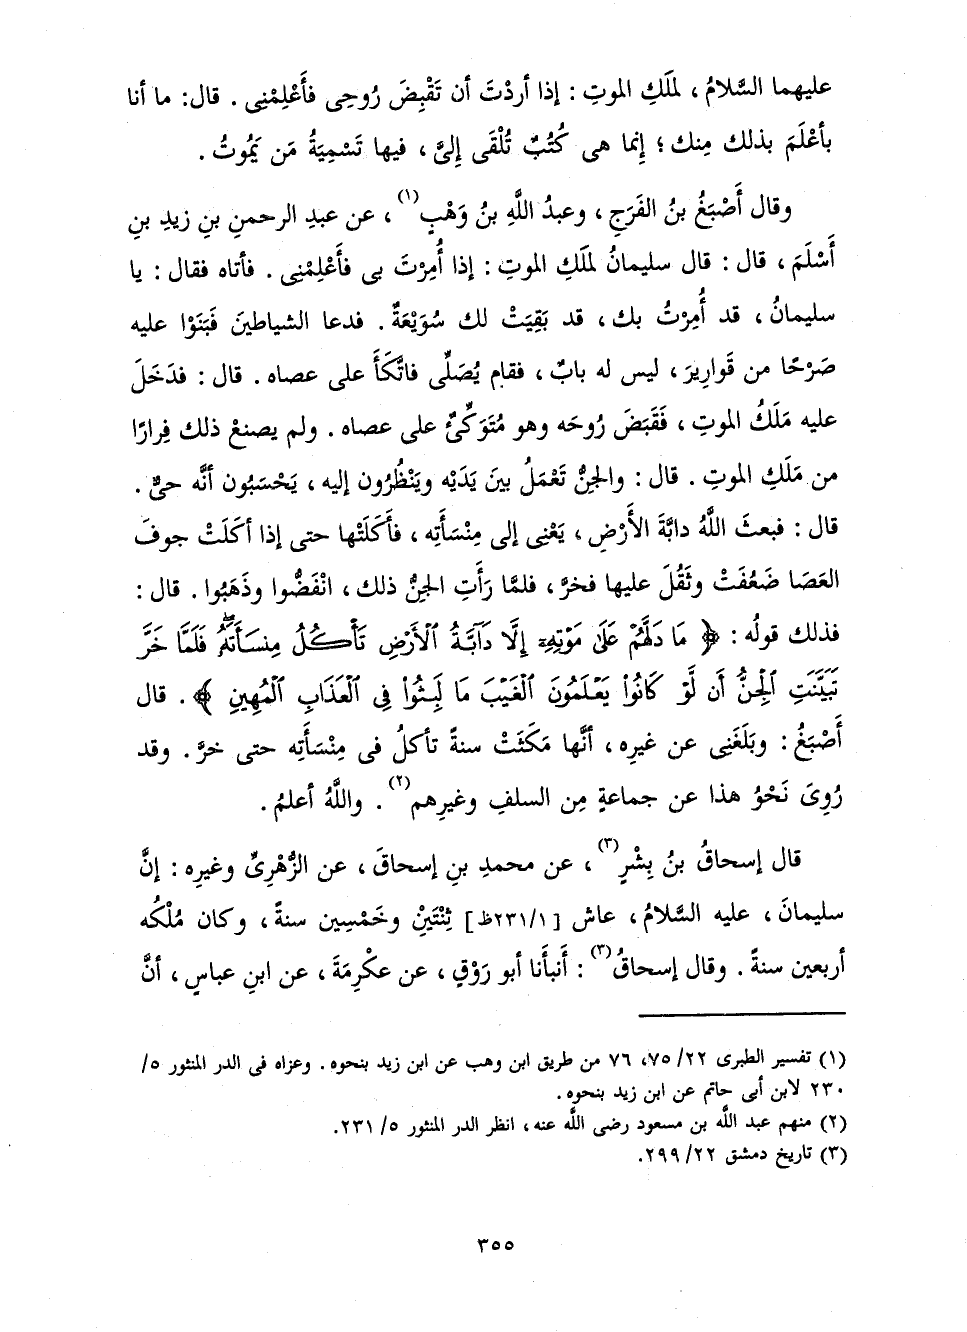 عليهما السَّلامُ ، لملَكِ الموتِ : إذا أردْتَ أن تَقْبِضَ رُوحِى فأَعْلِمْنِى . قال: ما أنا
بأعْلَمَ بذلك مِنك ؛ إنما هى كُتُبٌ تُلْقَى إلىَّ ، فيها تَسْمِيَةُ مَن يَمُوتُ .
وقال أَصْبَغُ بنُ الفَرَجِ ، وعبدُ اللَّهِ بنُ وَهْبٍ(١) ، عن عبدِ الرحمنِ بنِ زيدِ بنِ
أَسْلَمَ ، قال : قال سليمانُ لملَكِ الموتِ : إذا أُمِرْتَ بى فأَعْلِمْنِى . فأتاه فقال : يا
سليمانُ ، قد أُمِرْتُ بك ، قد بَقِيَتْ لك سُوَيْعَةٌ . فدعا الشياطينَ فَبَنَوْا عليه
صَرْحًا من قَوارِيرَ ، ليس له بابٌ ، فقام يُصَلِّى فاتَّكَأَ على عصاه . قال : فدَخَلَ
عليه مَلَكُ الموتِ ، فَقَبَضَ رُوحَه وهو مُتَوَكِّئٌ على عصاه . ولم يصنعْ ذلك فِرارًا
من مَلَكِ الموتِ . قال : والجِنُّ تَعْمَلُ بينَ يَدَيْه ويَنْظُرُون إليه ، يَحْسَبُون أنَّه حىٌّ .
قال : فبعثَ اللَّهُ دابَّةَ الأَرْضِ ، يَعْنِى إلى مِنْسَأَتِه ، فأَكَلَتْها حتى إذا أكَلَتْ جوفَ
العَصَا ضَعُفَتْ وثَقُلَ عليها فخرَّ ، فلمَّا رَأَتِ الجِنُّ ذلك ، انْفَضُّوا وذَهَبُوا . قال :
فذلك قولُه : ﴿ مَا دَلَّهُمْ عَلَىٰ مَوْتِهِۦٓ إِلَّا دَآبَّةُ ٱلْأَرْضِ تَأْكُلُ مِنسَأَتَهُۥ ۖ فَلَمَّا خَرَّ
تَبَيَّنَتِ ٱلْجِنُّ أَن لَّوْ كَانُوا۟ يَعْلَمُونَ ٱلْغَيْبَ مَا لَبِثُوا۟ فِى ٱلْعَذَابِ ٱلْمُهِينِ ﴾ . قال
أَصْبَغُ : وبَلَغَنِى عن غيرِه ، أنَّها مَكَثَتْ سنةً تأكلُ فى مِنْسَأَتِه حتى خرَّ . وقد
رُوِىَ نَحْوُ هذا عن جماعةٍ مِن السلفِ وغيرِهم(٢) . واللَّهُ أعلمُ .
قال إسحاقُ بنُ بِشْرٍ(٣) ، عن محمدِ بنِ إسحاقَ ، عن الزُّهْرِىِّ وغيرِه : إنَّ
سليمانَ ، عليه السَّلامُ ، عاش [٢٣١/١ظ] ثِنْتَيْنِ وخَمْسِين سنةً ، وكان مُلْكُه
أربعين سنةً . وقال إسحاقُ(٣) : أَنبأَنا أبو رَوْقٍ ، عن عكْرِمَةَ ، عن ابنِ عباسٍ ، أنَّ
(١) تفسير الطبرى ٢٢/ ٧٥، ٧٦ من طريق ابن وهب عن ابن زيد بنحوه . وعزاه فى الدر المنثور ٥/
٢٣٠ لابن أبى حاتم عن ابن زيد بنحوه .
(٢) منهم عبد اللَّه بن مسعود رضى اللَّه عنه، انظر الدر المنثور ٥/ ٢٣١.
(٣) تاريخ دمشق ٢٢/ ٢٩٩.
٣٥٥